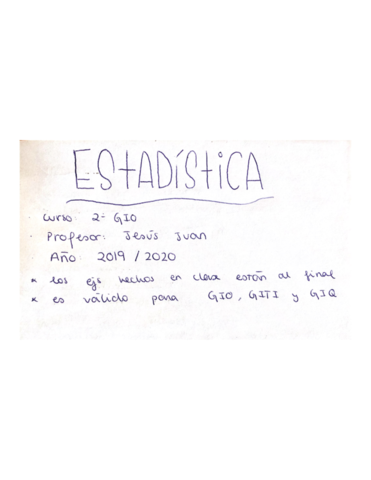 ESTADÍSTICA
· Curso: 2º GIO
· Profesor: Jesús Juan
· Año: 2019 / 2020
* los ejs hechos en clase están al final
* es válido para GIO, GITI y GIQ